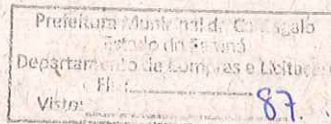 Prefeitura Municipal de Cantagalo
Estado do Paraná
Departamento de Compras e Licitaç
Fl.: 87.
Visto: